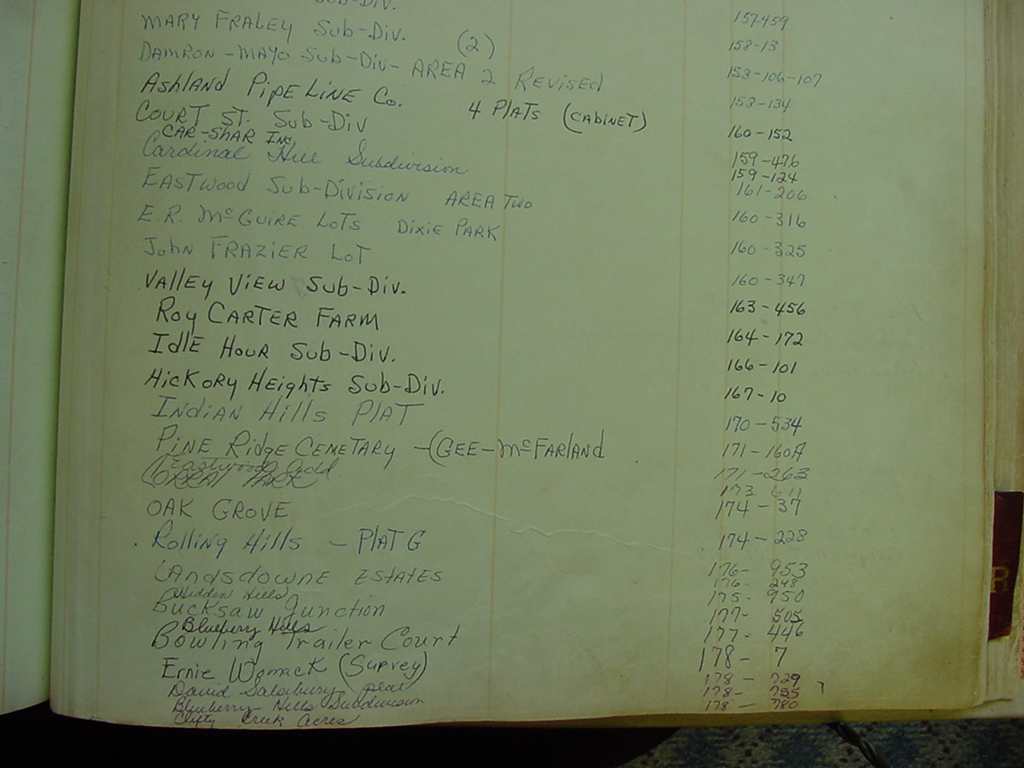 Sub-Div.
Mary Fraley Sub-Div. (2) 157-459
Damron-Mayo Sub-Div- Area 2 Revised 158-13
Ashland PipeLine Co. 4 Plats (Cabinet) 158-106-107
Court St. Sub-Div 158-134
Car-Shar Inc. 160-152
Cardinal Hill Subdivision 159-476
159-124
Eastwood Sub-Division Area Two 161-206
E.R. McGuire Lots Dixie Park 160-316
John Frazier Lot 160-325
Valley View Sub-Div. 160-347
Roy Carter Farm 163-456
Idle Hour Sub-Div. 164-172
Hickory Heights Sub-Div. 166-101
Indian Hills Plat 167-10
Pine Ridge Cemetary -(Gee-McFarland 170-534
171-160A
171-263
173 611
Oak Grove 174-37
Rolling Hills - Plat G 174-228
Landsdowne Estates 176- 953
Hidden Hills 176- 248
Bucksaw Junction 175- 950
Blueberry Hills 177- 505
Bowling Trailer Court 177- 446
Ernie Womack (Survey) 178- 7
David Salisbury plat 178- 729
Blueberry Hills Subdivision 178- 755
Clifty Creek Acres 178- 780
R